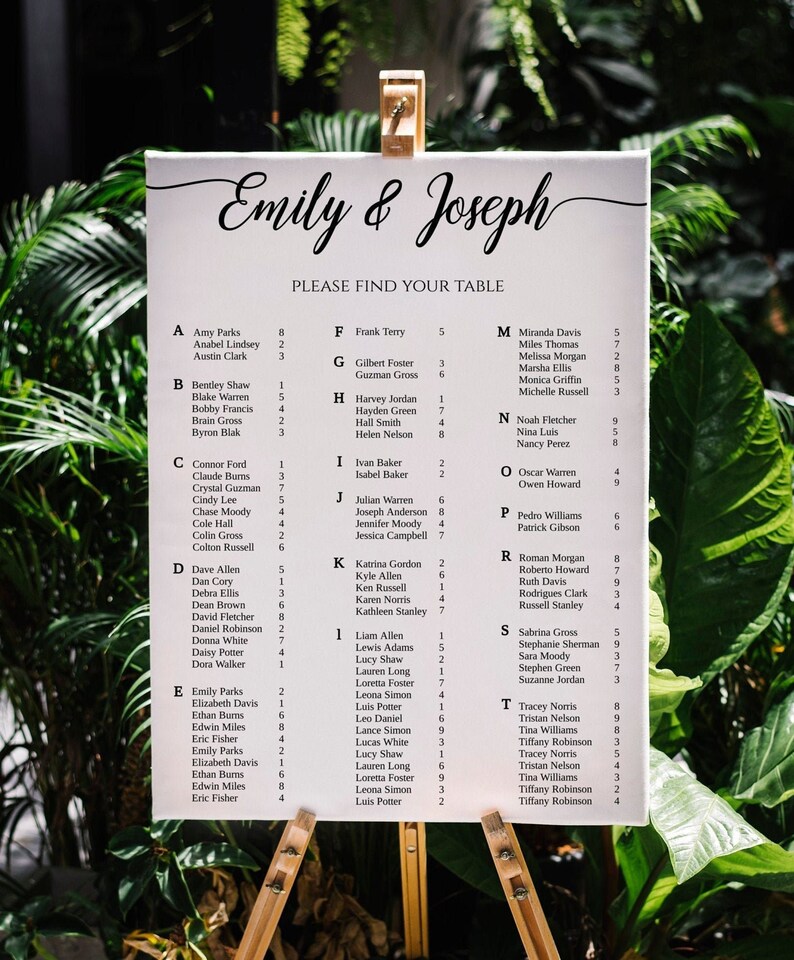 Emily & Joseph
PLEASE FIND YOUR TABLE
A Amy Parks 8
Anabel Lindsey 2
Austin Clark 3
B Bentley Shaw 1
Blake Warren 5
Bobby Francis 4
Brain Gross 2
Byron Blak 3
C Connor Ford 1
Claude Burns 3
Crystal Guzman 7
Cindy Lee 5
Chase Moody 4
Cole Hall 4
Colin Gross 2
Colton Russell 6
D Dave Allen 5
Dan Cory 1
Debra Ellis 3
Dean Brown 6
David Fletcher 8
Daniel Robinson 2
Donna White 7
Daisy Potter 4
Dora Walker 1
E Emily Parks 2
Elizabeth Davis 1
Ethan Burns 6
Edwin Miles 8
Eric Fisher 4
Emily Parks 2
Elizabeth Davis 1
Ethan Burns 6
Edwin Miles 8
Eric Fisher 4
F Frank Terry 5
G Gilbert Foster 3
Guzman Gross 6
H Harvey Jordan 1
Hayden Green 7
Hall Smith 4
Helen Nelson 8
I Ivan Baker 2
Isabel Baker 2
J Julian Warren 6
Joseph Anderson 8
Jennifer Moody 4
Jessica Campbell 7
K Katrina Gordon 2
Kyle Allen 6
Ken Russell 1
Karen Norris 4
Kathleen Stanley 7
l Liam Allen 1
Lewis Adams 5
Lucy Shaw 2
Lauren Long 1
Loretta Foster 7
Leona Simon 4
Luis Potter 1
Leo Daniel 6
Lance Simon 9
Lucas White 3
Lucy Shaw 1
Lauren Long 6
Loretta Foster 9
Leona Simon 3
Luis Potter 2
M Miranda Davis 5
Miles Thomas 7
Melissa Morgan 2
Marsha Ellis 8
Monica Griffin 5
Michelle Russell 3
N Noah Fletcher 9
Nina Luis 5
Nancy Perez 8
O Oscar Warren 4
Owen Howard 9
P Pedro Williams 6
Patrick Gibson 6
R Roman Morgan 8
Roberto Howard 7
Ruth Davis 9
Rodrigues Clark 3
Russell Stanley 4
S Sabrina Gross 5
Stephanie Sherman 9
Sara Moody 3
Stephen Green 7
Suzanne Jordan 3
T Tracey Norris 8
Tristan Nelson 9
Tina Williams 8
Tiffany Robinson 3
Tracey Norris 5
Tristan Nelson 4
Tina Williams 3
Tiffany Robinson 2
Tiffany Robinson 4